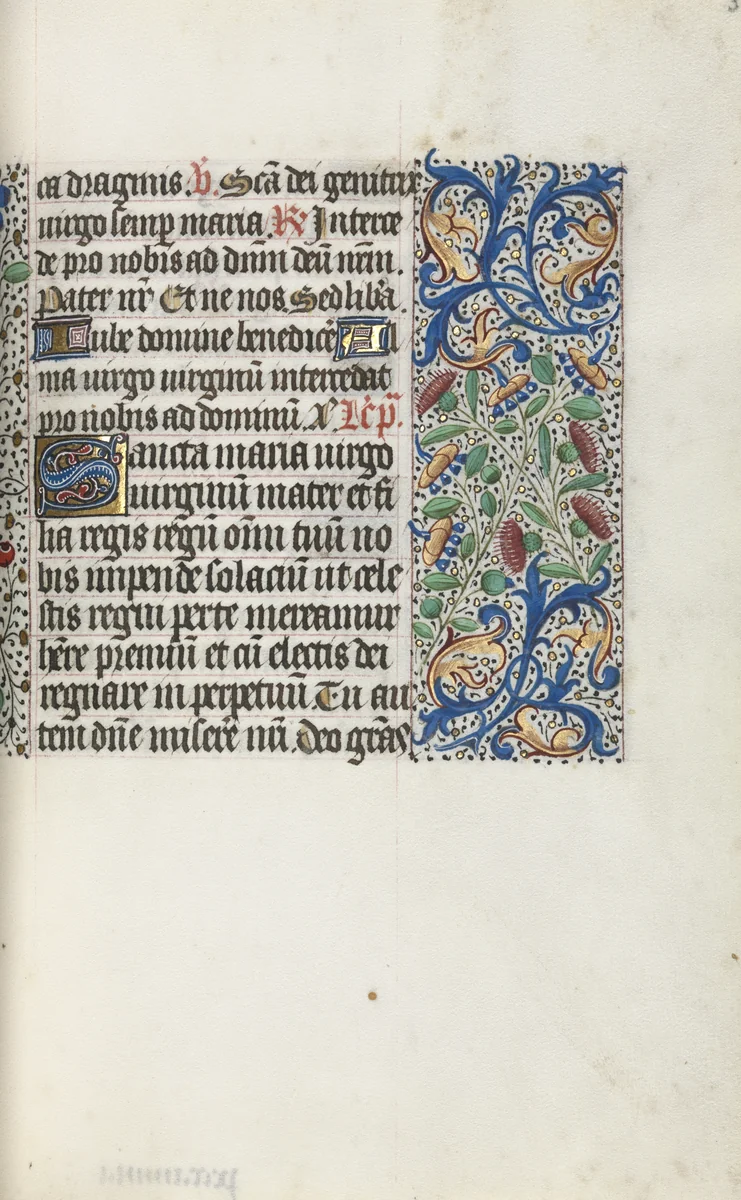 ca dragmis. V. Scā dei genitrix
virgo semp maria. R Interce
de pro nobis ad dnm deū nrm.
Pater nr Et ne nos. Sed liba
Iube domine benedicē Al
ma virgo virginū intercedat
pro nobis ad dominū. Lcō
Sancta maria virgo
virginū mater et fi
lia regis regū oīm tuū no
bis impende solaciū ut cele
stis regni per te mereamur
hēre premiū et cū electis dei
regnare in perpetuū Tu au
tem dñe miserē nrī. Deo grās